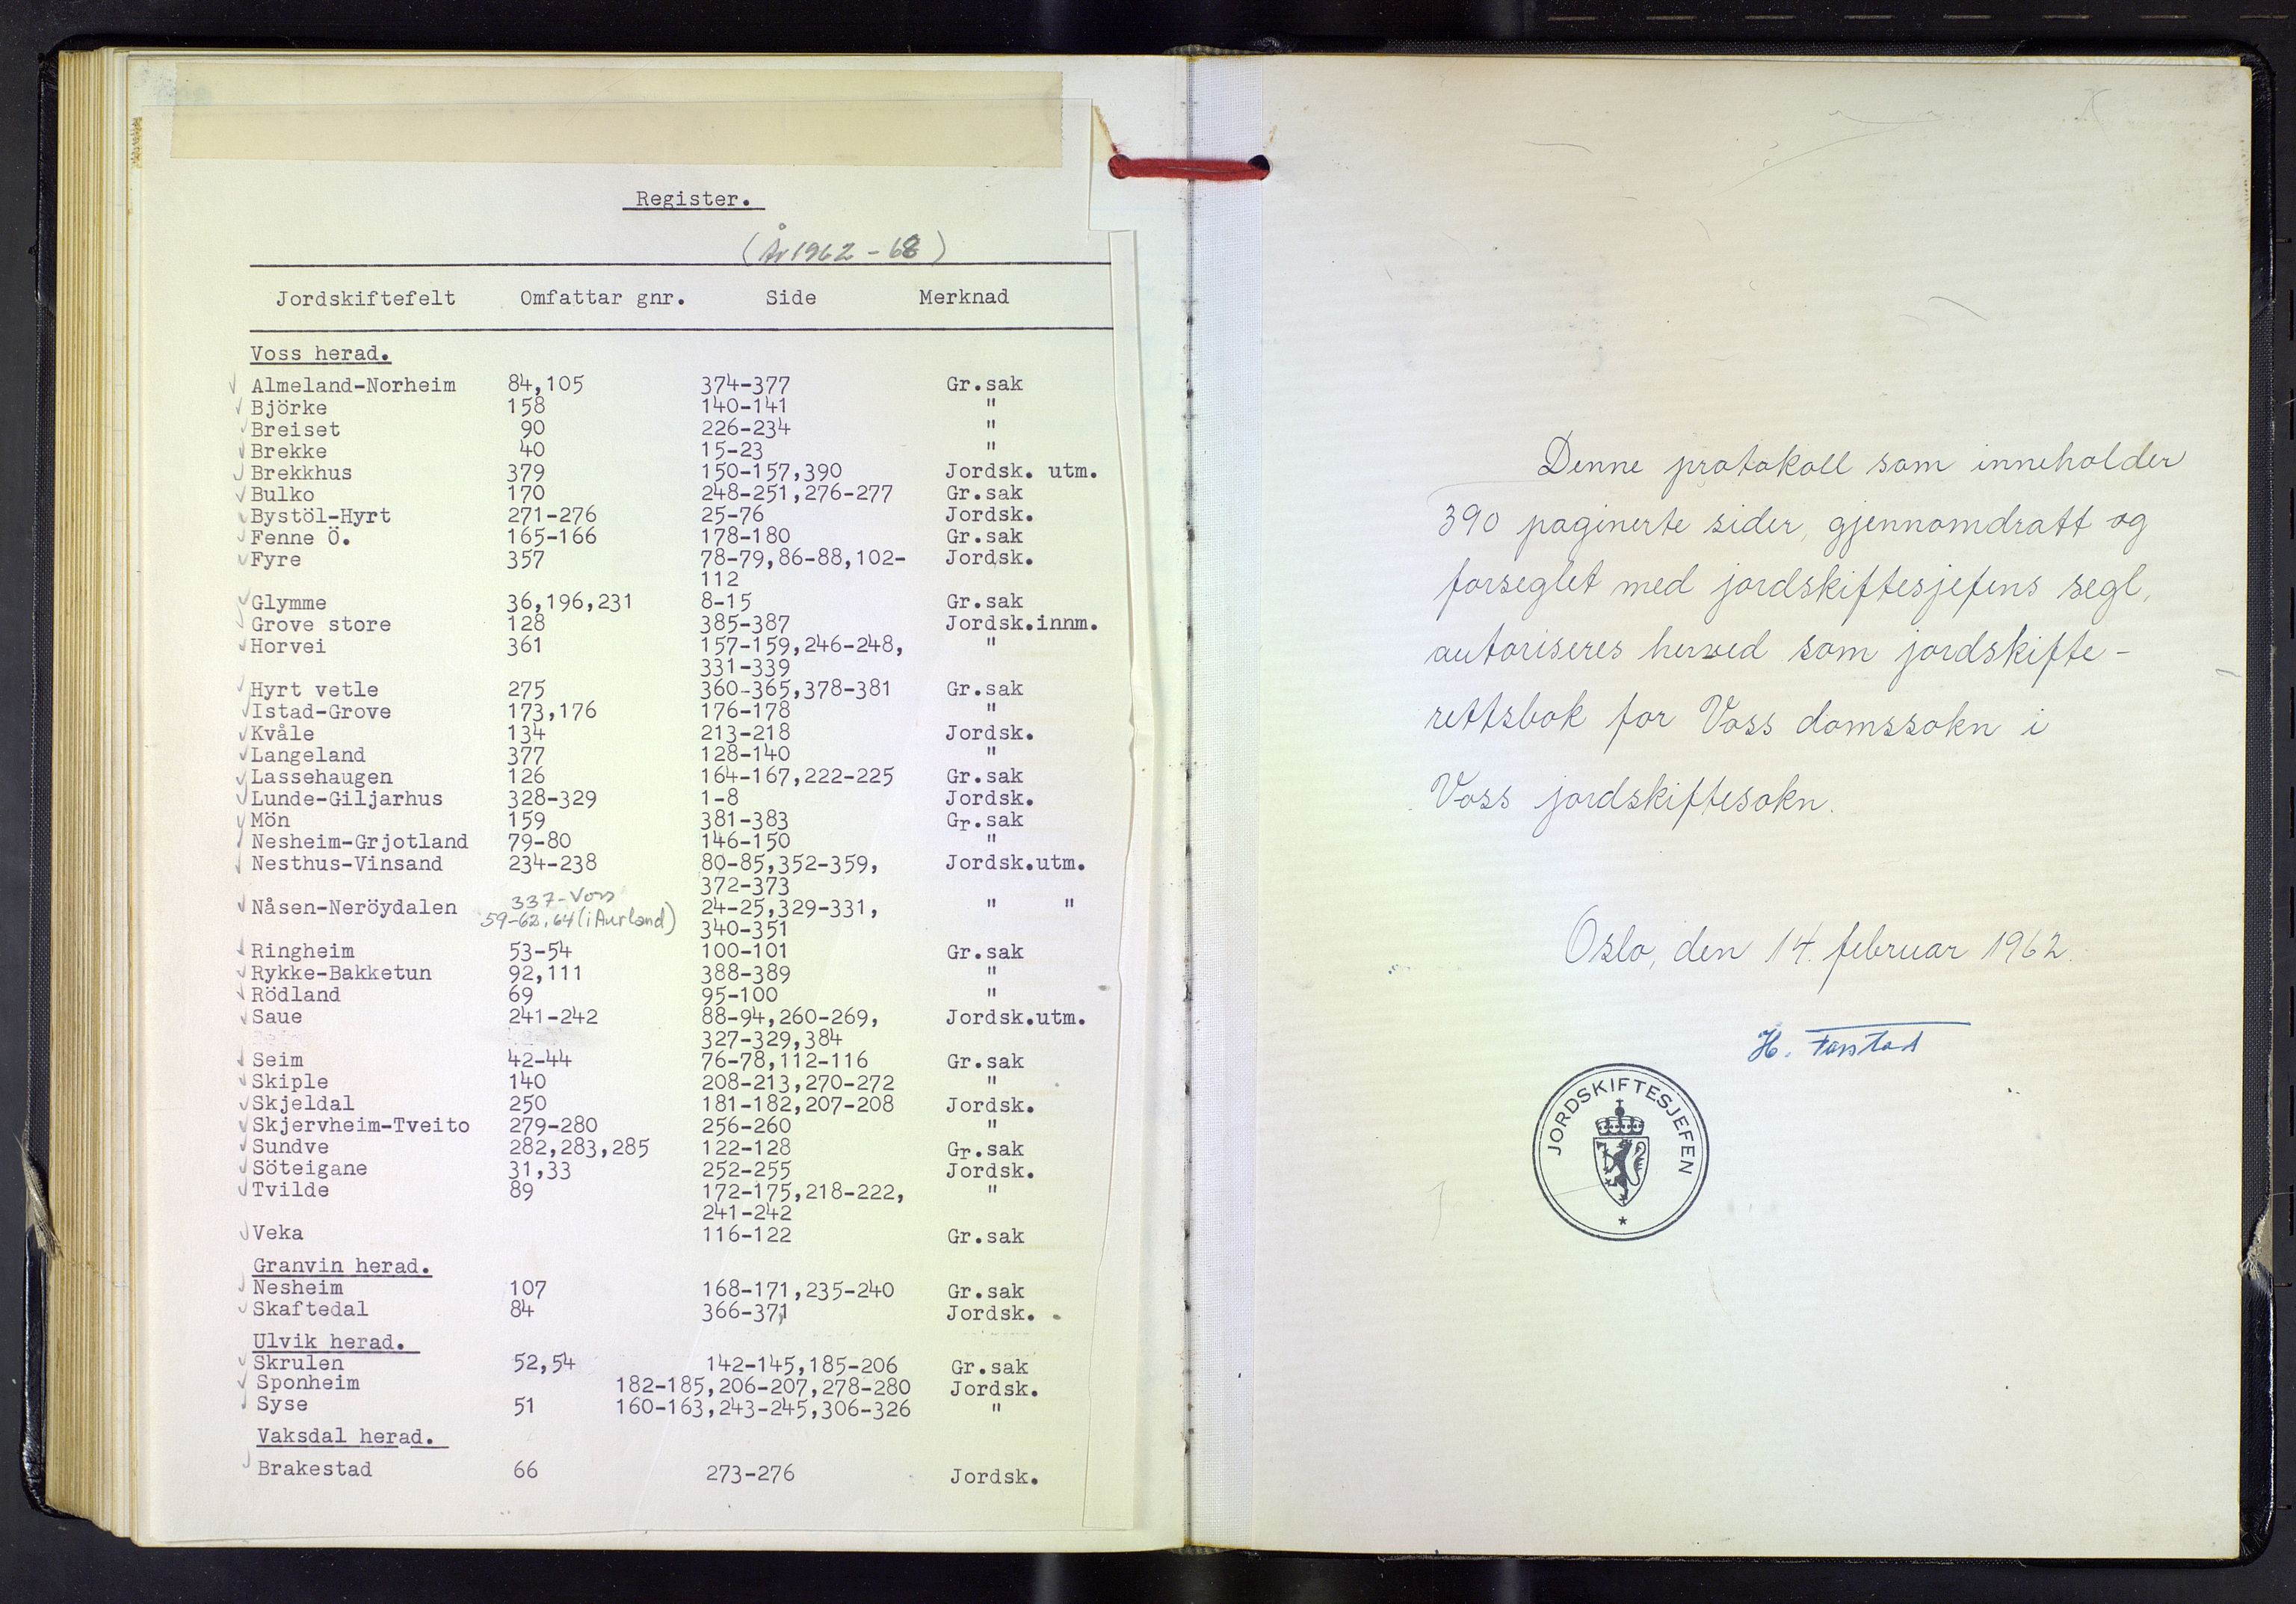 Register.
(År 1962 - 68)
Jordskiftefelt Omfattar gnr. Side Merknad
Voss herad.
√ Almeland-Norheim 84,105 374-377 Gr.sak
√ Björke 158 140-141 "
√ Breiset 90 226-234 "
√ Brekke 40 15-23 "
√ Brekkhus 379 150-157,390 Jordsk. utm.
√ Bulko 170 248-251,276-277 Gr.sak
√ Bystöl-Hyrt 271-276 25-76 Jordsk.
√ Fenne Ö. 165-166 178-180 Gr.sak
√ Fyre 357 78-79,86-88,102- Jordsk.
112
√ Glymme 36,196,231 8-15 Gr.sak
√ Grove store 128 385-387 Jordsk.innm.
√ Horvei 361 157-159,246-248, "
331-339
√ Hyrt vetle 275 360-365,378-381 Gr.sak
√ Istad-Grove 173,176 176-178 "
√ Kvåle 134 213-218 Jordsk.
√ Langeland 377 128-140 "
√ Lassehaugen 126 164-167,222-225 Gr.sak
√ Lunde-Giljarhus 328-329 1-8 Jordsk.
√ Mön 159 381-383 Gr.sak
√ Nesheim-Grjotland 79-80 146-150 "
√ Nesthus-Vinsand 234-238 80-85,352-359, Jordsk.utm.
372-373
337-Voss
√ Nåsen-Neröydalen 59-62,64 (i Aurland) 24-25,329-331, " "
340-351
√ Ringheim 53-54 100-101 Gr.sak
√ Rykke-Bakketun 92,111 388-389 "
√ Rödland 69 95-100 "
√ Saue 241-242 88-94,260-269, Jordsk.utm.
327-329,384
√ Seim 42-44 76-78,112-116 Gr.sak
√ Skiple 140 208-213,270-272 "
√ Skjeldal 250 181-182,207-208 Jordsk.
√ Skjervheim-Tveito 279-280 256-260 "
√ Sundve 282,283,285 122-128 Gr.sak
√ Söteigane 31,33 252-255 Jordsk.
√ Tvilde 89 172-175,218-222, "
241-242
√ Veka 116-122 Gr.sak
Granvin herad.
√ Nesheim 107 168-171,235-240 Gr.sak
√ Skaftedal 84 366-371 Jordsk.
Ulvik herad.
√ Skrulen 52,54 142-145,185-206 Gr.sak
√ Sponheim 182-185,206-207,278-280 Jordsk.
√ Syse 51 160-163,243-245,306-326 "
Vaksdal herad.
√ Brakestad 66 273-276 Jordsk.
Denne protokoll som inneholder
390 paginerte sider, gjennomdratt og
forseglet med jordskiftesjefens segl,
autoriseres herved som jordskifte-
rettsbok for Voss domssokn i
Voss jordskiftesokn.
Oslo, den 14. februar 1962.
H. Farstad
JORDSKIFTESJEFEN
*